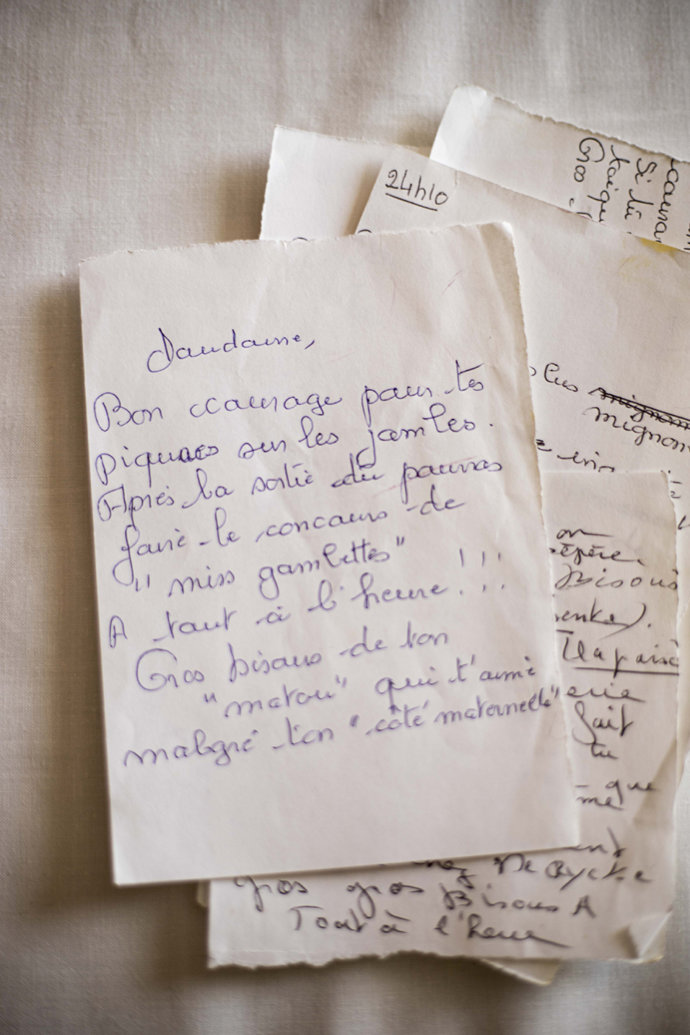 Doudoune,
Bon courage pour tes
piqures sur les jambes.
Après la sortie tu pourras
faire le concours de
"miss gambettes"
A tout à l'heure !!!
Gros bisous de ton
"matou" qui t'aime
malgré ton "côté maternelle"
24h10
Si tu
Gros
plus mignon
mignon
Bisous
fait
tu
que
gros gros Bisous A
Tout à l'heure